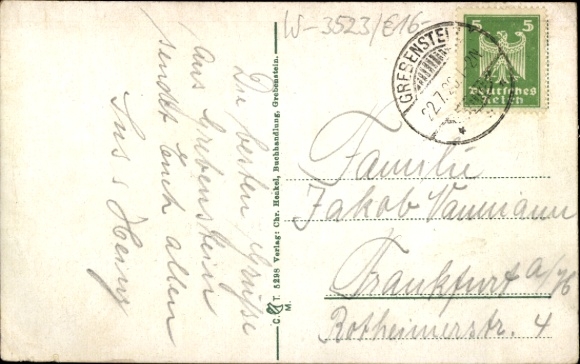 W-3523/E16-
5 5
Deutsches
Reich
GREBENSTEIN
22.7.26
Die besten Grüße
aus Grebenstein
sendet Euch allen
Sus & Heinz
C. T. 5298 Verlag: Chr. Henkel, Buchhandlung, Grebenstein.
M.
Familie
Jakob
Frankfurt a/M
Rotheimerstr. 4